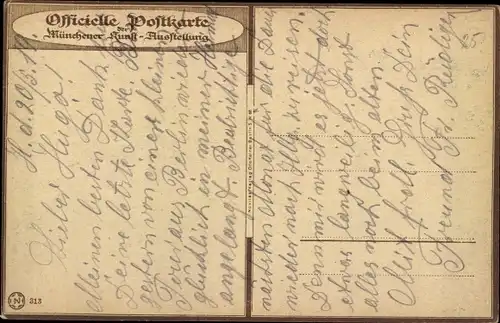 Officielle Postkarte
der
Münchener Kunst-Ausstellung
H. d. 20/3. 19.
Lieber Hugo!
Meinen besten Dank f.
Deine letzte Karte. Bin
gestern von einer kleinen
Tour aus Berlin wieder
glücklich in meiner Heimat
angelangt. Beabsichtige
nächsten Monat für die Dauer
wieder nach zu reisen.
Denn mir wird es jetzt doch
etwas langweilig. Sonst
alles noch beim alten.
Mit frdl. Gruß Dein
Freund Fr. Rüdiger
N 313